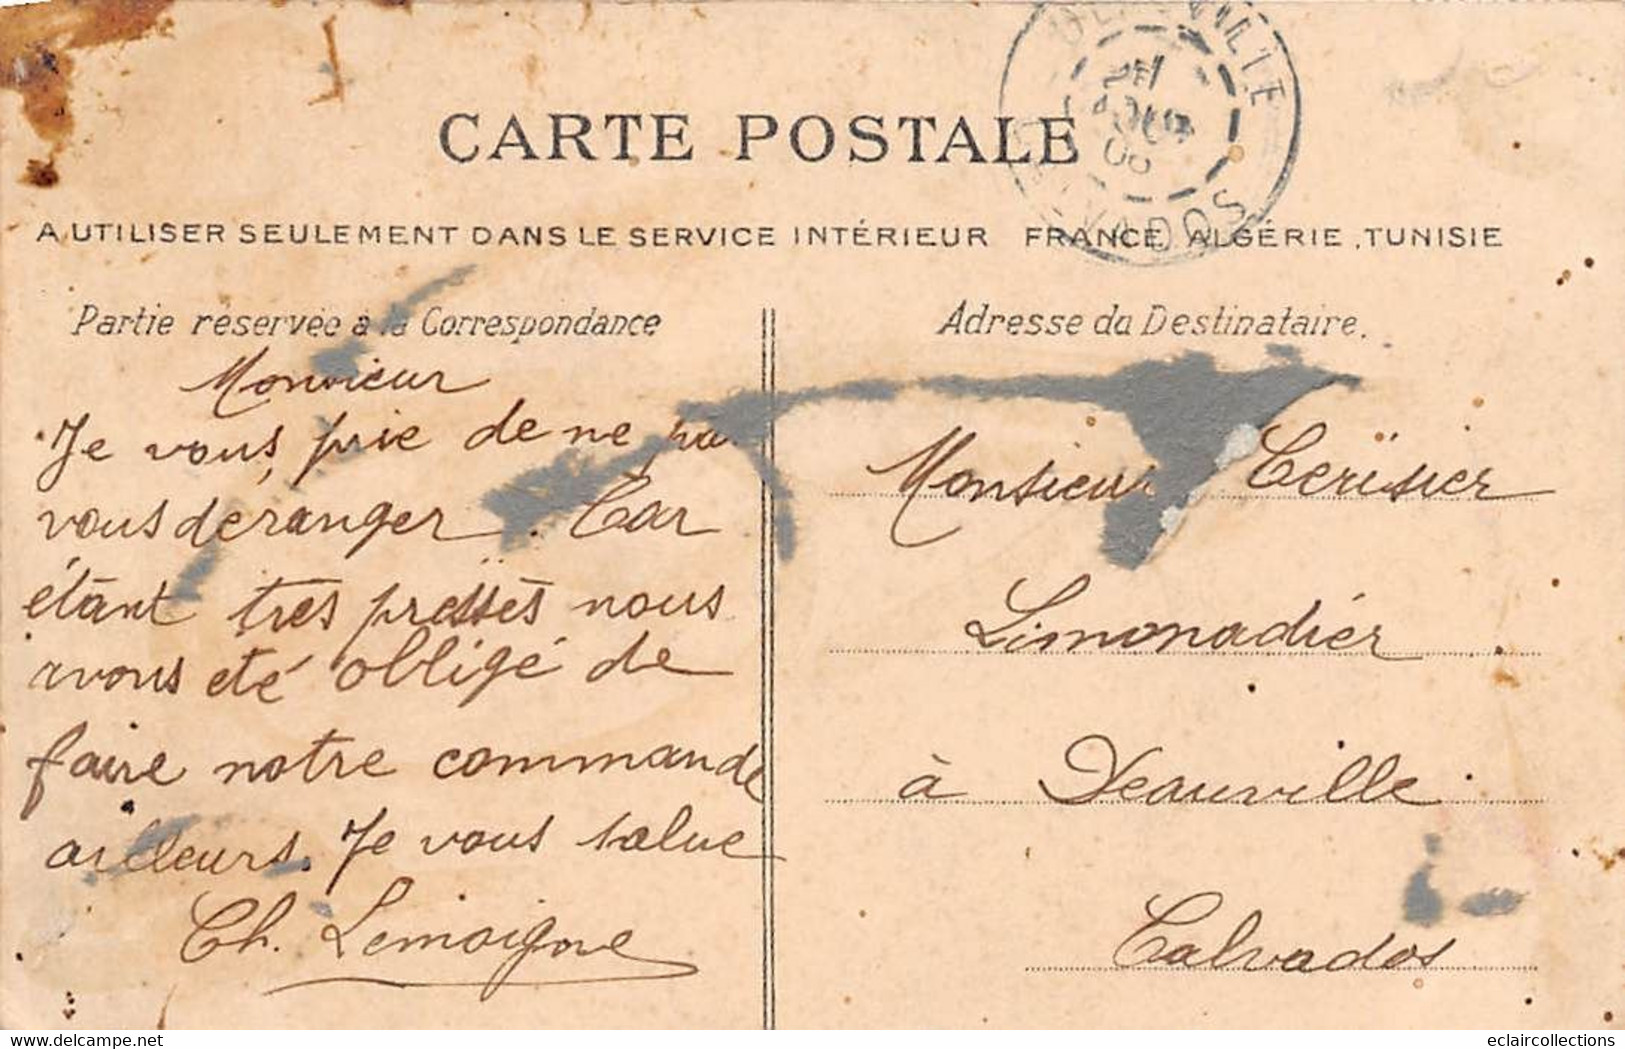 CARTE POSTALE
A UTILISER SEULEMENT DANS LE SERVICE INTÉRIEUR FRANCE, ALGÉRIE, TUNISIE
Partie réservée à la Correspondance
Monsieur
Je vous prie de ne pas
vous déranger. Car
étant très pressés nous
avons été obligé de
faire notre commande
ailleurs. Je vous salue
Ch. Lemoigne
Adresse du Destinataire.
Monsieur Cerisier
Limonadier
à Deauville
Calvados
eclaircollections